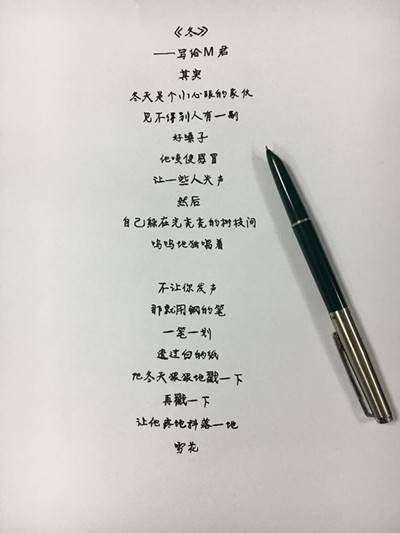 《冬》
——写给M君
其实
冬天是个小心眼的家伙
见不得别人有一副
好嗓子
他唆使感冒
让一些人失声
然后
自己躲在光秃秃的树枝间
呜呜地独唱着
不让你发声
那就用钢的笔
一笔一划
透过白的纸
把冬天狠狠地戳一下
再戳一下
让他疼地抖落一地
雪花